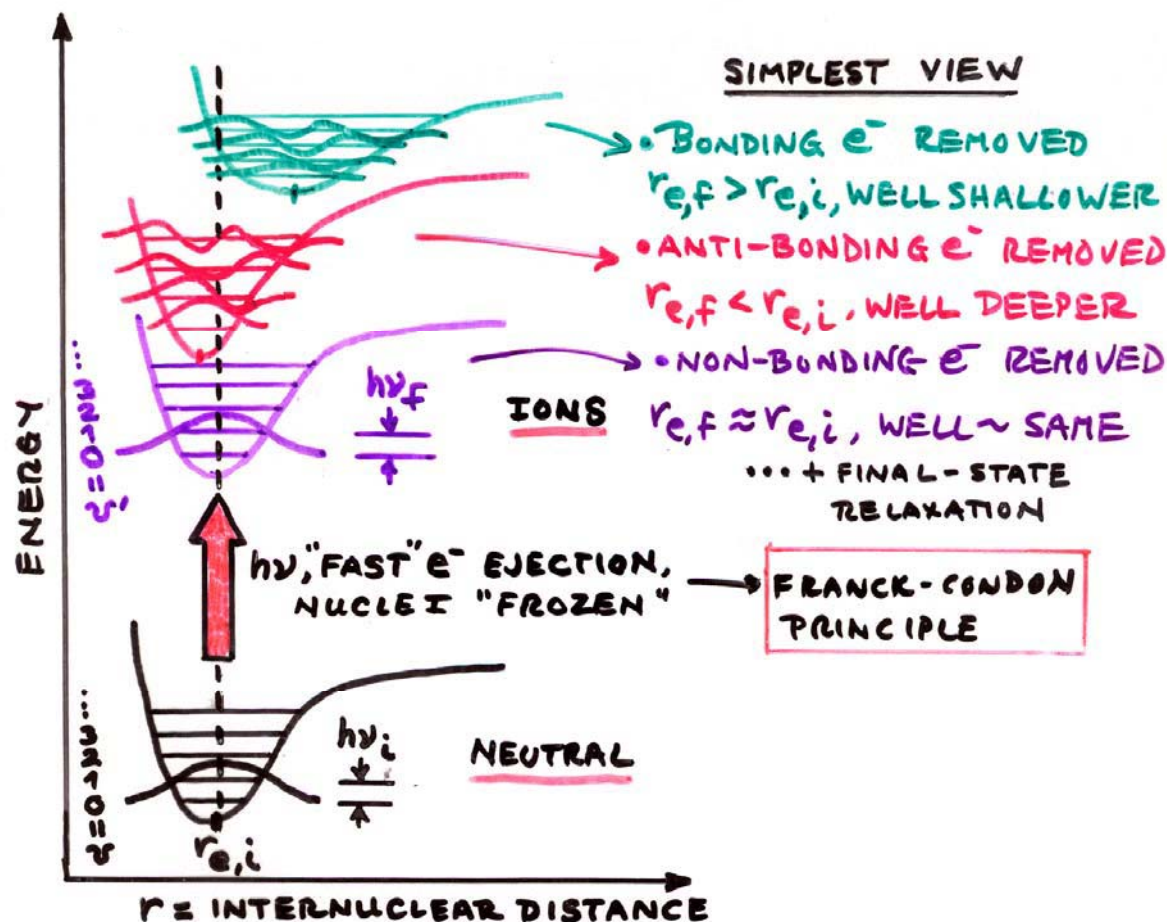 SIMPLEST VIEW
• BONDING e⁻ REMOVED
r_e,f > r_e,i, WELL SHALLOWER
• ANTI-BONDING e⁻ REMOVED
r_e,f < r_e,i, WELL DEEPER
• NON-BONDING e⁻ REMOVED
r_e,f ≈ r_e,i, WELL ~ SAME
... + FINAL-STATE
RELAXATION
ENERGY
v'=0123...
hν_f
IONS
hν, "FAST" e⁻ EJECTION,
NUCLEI "FROZEN"
FRANCK-CONDON
PRINCIPLE
v=0123...
hν_i
NEUTRAL
r_e,i
r = INTERNUCLEAR DISTANCE